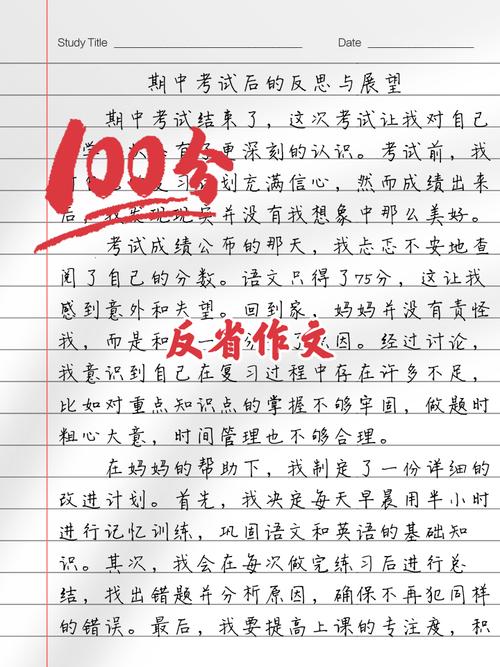 Study Title Date
期中考试后的反思与展望
期中考试结束了，这次考试让我对自己
100分
学 有了更深刻的认识。考试前，我
复习计划充满信心，然而成绩出来
后，我发现现实并没有我想象中那么美好。
考试成绩公布的那天，我忐忑不安地查
阅了自己的分数。语文只得了75分，这让我
感到意外和失望。回到家，妈妈并没有责怪
我，而是和 一 分 了原因。经过讨论，
反省作文
我意识到自己在复习过程中存在许多不足，
比如对重点知识点的掌握不够牢固，做题时
粗心大意，时间管理也不够合理。
在妈妈的帮助下，我制定了一份详细的
改进计划。首先，我决定每天早晨用半小时
进行记忆训练，巩固语文和英语的基础知
识。其次，我会在每次做完练习后进行总
结，找出错题并分析原因，确保不再犯同样
的错误。最后，我要提高上课的专注度，积